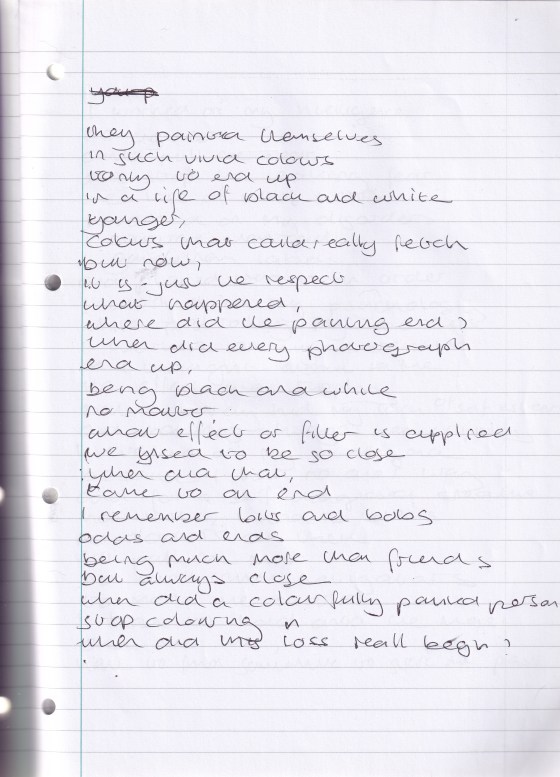 they painted themselves
in such vivid colours
only to end up
in a life of black and white
younger,
colours that could really fetch
but now,
it is just the respect
what happened,
where did the painting end?
when did every photograph
end up,
being black and white
no matter
what effect or filter is applied
we used to be so close
when did that,
came to an end
I remember bits and bobs
odds and ends
being much more than friends
but always close
when did a colourfully painted person
stop colouring in
when did loss reall begin?